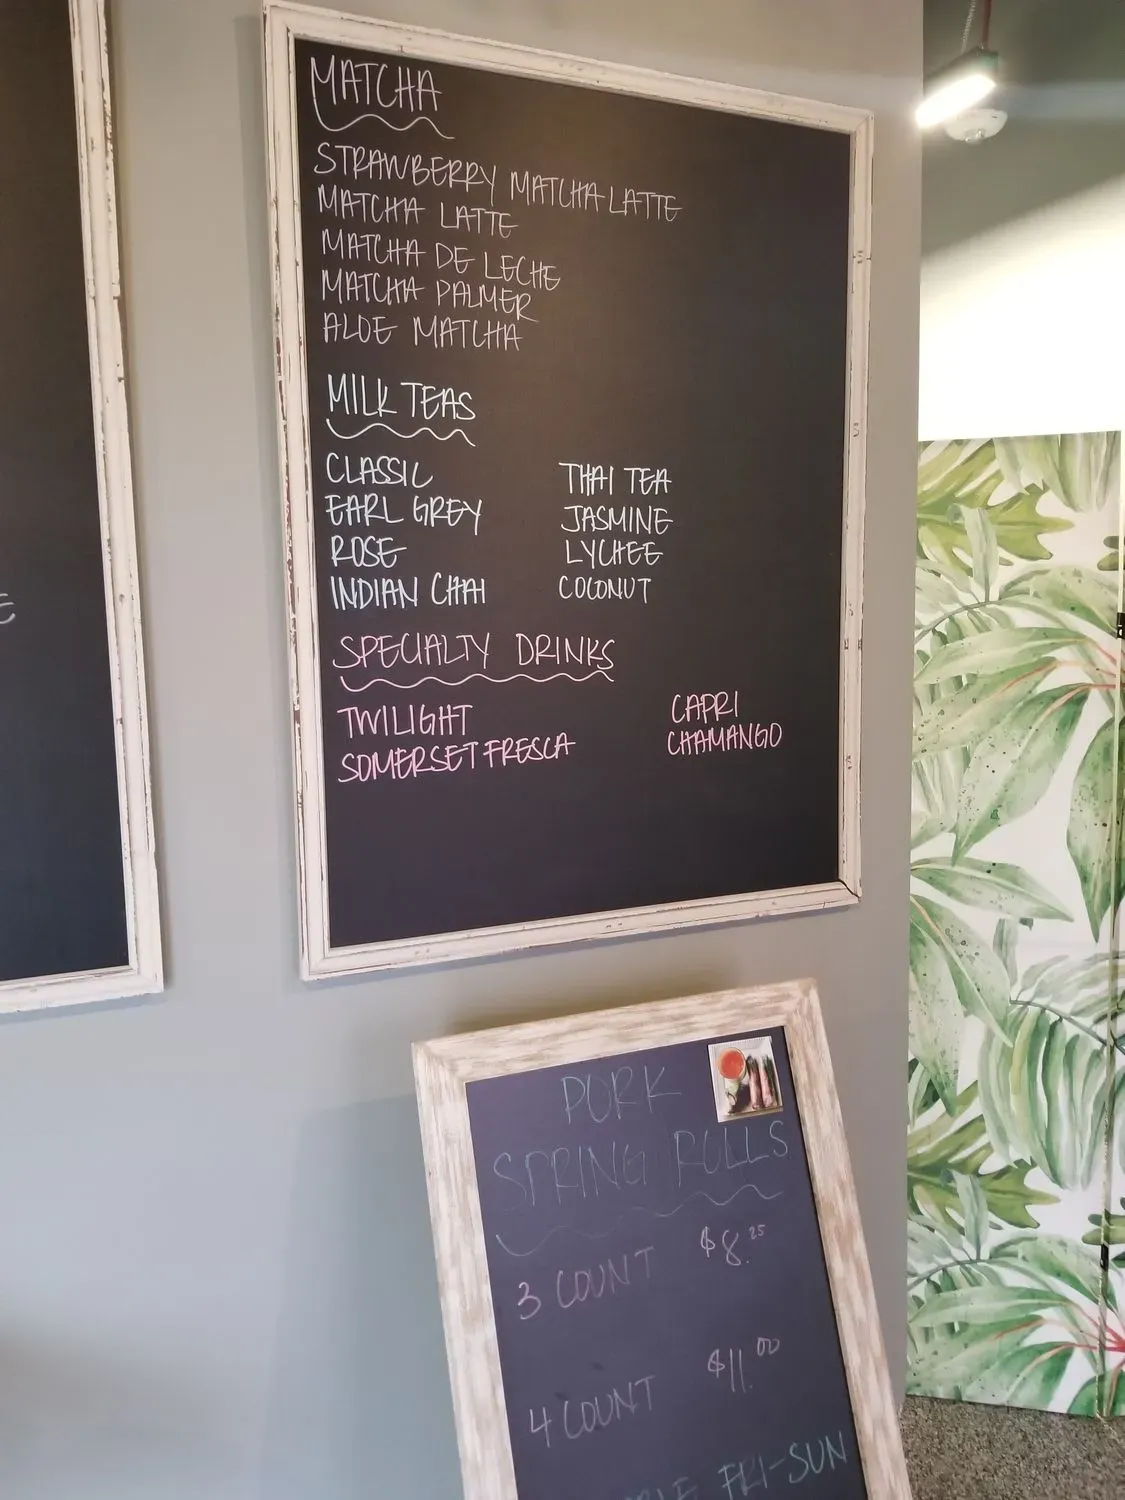 MATCHA
STRAWBERRY MATCHA LATTE
MATCHA LATTE
MATCHA DE LECHE
MATCHA PALMER
ALOE MATCHA
MILK TEAS
CLASSIC
EARL GREY
ROSE
INDIAN CHAI
THAI TEA
JASMINE
LYCHEE
COCONUT
SPECIALTY DRINKS
TWILIGHT
SOMERSET FRESCA
CAPRI
CHAMANGO
PORK
SPRING ROLLS
3 COUNT $8.25
4 COUNT $11.00
FRI-SUN